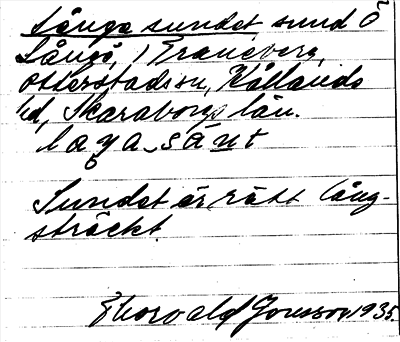 Långa sundet, sund Ö
Långö, Traneberg,
Otterstads sn, Kållands
hd, Skaraborgs län.
Sundet är rätt lång-
sträckt.
Thorvald Jonsson 1935.